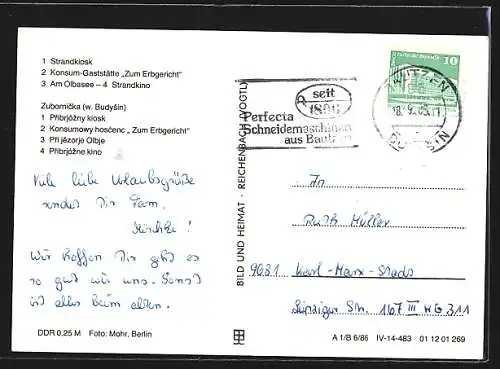 1 Strandkiosk
2 Konsum-Gaststätte „Zum Erbgericht"
3 Am Olbasee – 4 Strandkino
Zubornička (w. Budyšin)
1 Přibrjóžny kiosk
2 Konsumowy hosćenc „Zum Erbgericht"
3 Při jězorje Olbje
4 Přibrjóžne kino
Viele liebe Urlaubsgrüße
sendet Dir Fam.
Wir hoffen Dir geht es
so gut wie uns. Sonst
ist alles beim alten.
DDR 0,25 M Foto: Mohr, Berlin
BILD UND HEIMAT · REICHENBACH (VOGTL)
seit
1896
Perfecta
Schneidemaschinen
aus Bautzen
10
BAUTZEN
BUDYŠIN
An
Ruth Müller
9031 Karl-Marx-Stadt
Leipziger Str. 167 III WG 311
A 1/B 6/86 IV-14-483 01 12 01 269